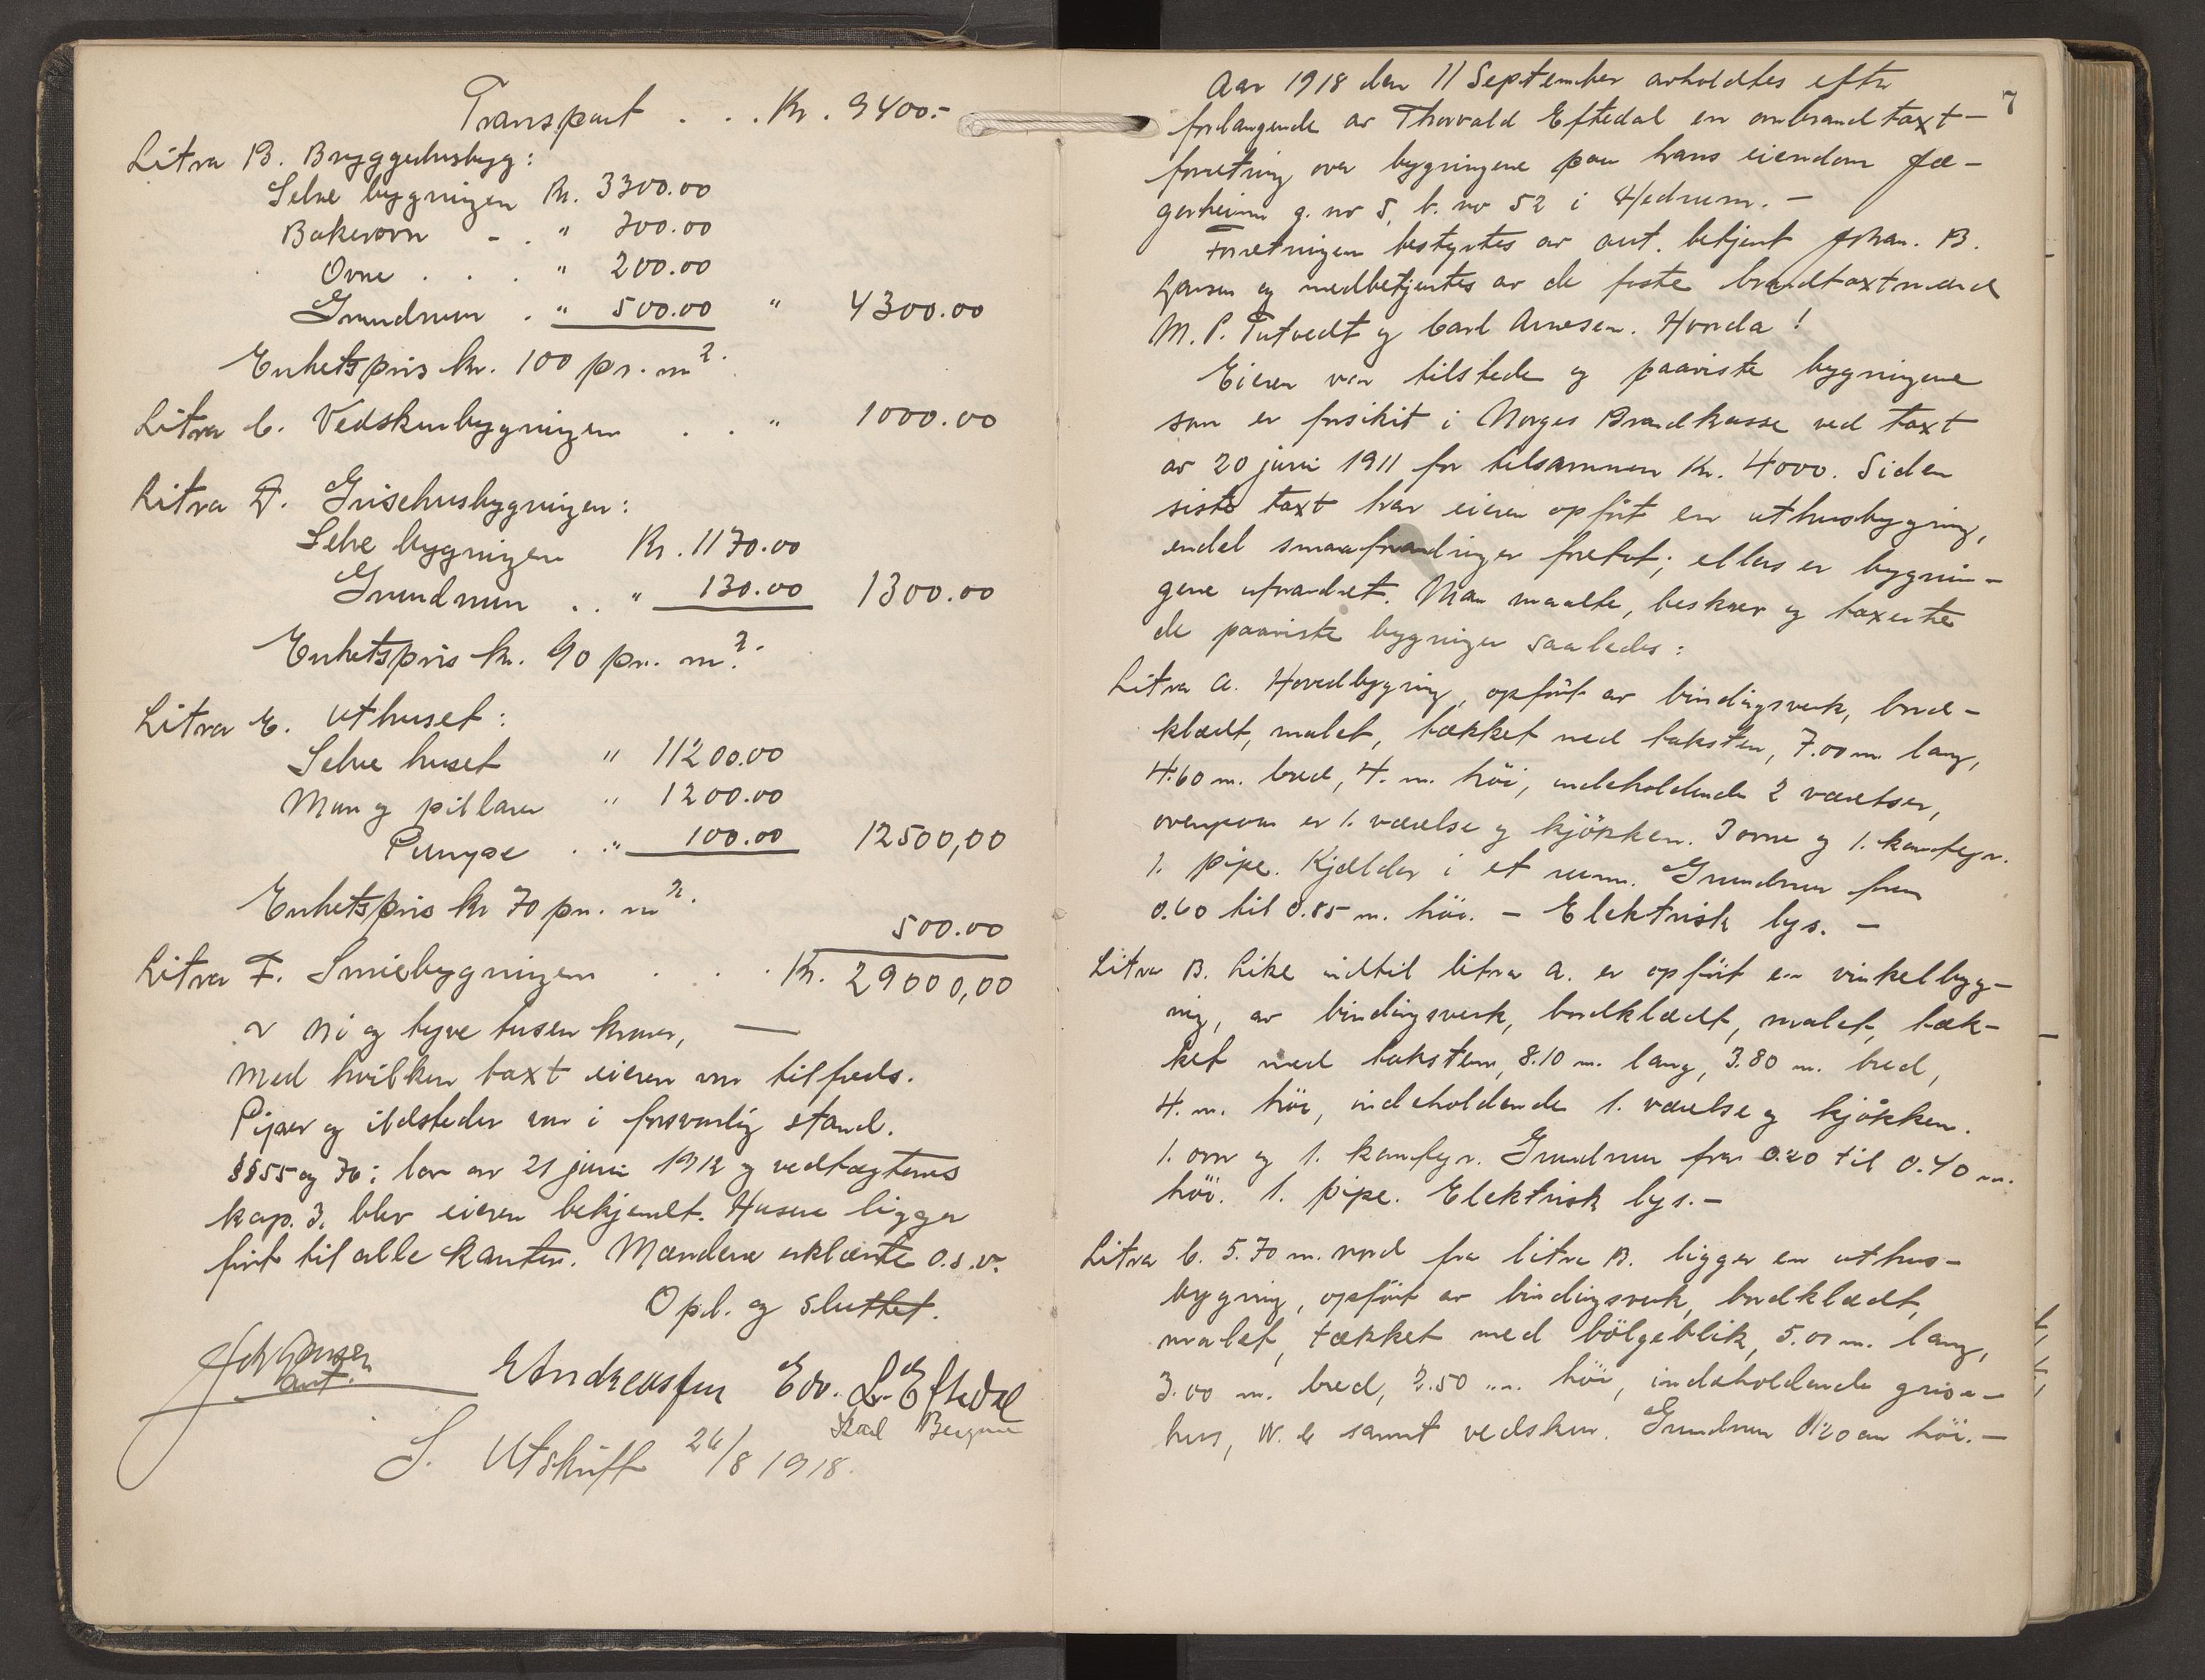 Transport . . . Kr. 9400.-
Litra B. Bryggerhusbyg:
Selve bygningen Kr. 3300.00
Bakerovn - . " 300.00
Ovne . . . " 200.00
Grundmur . " 500.00 " 4300.00
Enhetspris kr. 100 pr. m².
Litra C. Vedskurbygningen . . " 1000.00
Litra D. Grisehusbygningen:
Selve bygningen Kr. 1170.00
Grundmur . . " 130.00 1300.00
Enhetspris kr. 90 pr. m².
Litra E. Uthuset:
Selve huset " 11200.00
Mur og pillarer " 1200.00
Pumpe . . " 100.00 12500,00
Enhetspris kr 70 pr. m².
500.00
Litra F. Smiebygningen . . . Kr. 29000,00
er ni og tyve tusen kroner, —
med hvilken taxt eieren var tilfreds.
Piper og ildsteder var i forsvarlig stand.
§§55 og 76 i lov av 21 juni 1912 og vedtægternes
kap. 3. blev eieren bekjendt. Husene ligger
frit til alle kanter. Mændene erklærte o.s.v.
Opl. og sluttet.
Joh Jansen
aut.
E Andreassen Edv. L. Eftedal
Karl Bergene
S. Utskrift 26/8 1918.
7
Aar 1918 den 11 September avholdtes efter
forlangende av Thorvald Eftedal en ombrandtaxt-
forretning over bygningene paa hans eiendom Jæ-
gerheim g. nr 5, b. nr 52 i Hedrum. -
Forretningen bestyrtes av aut. betjent Johan. B.
Jansen og medbetjentes av de faste brandtaxtmænd
M. P. Tutvedt og Carl Arnesen. Hvorda!
Eieren var tilstede og paaviste bygningene
som er forsikret i Norges Brandkasse ved taxt
av 20 juni 1911 for tilsammen Kr. 4000. Siden
siste taxt har eieren opført en uthusbygning,
endel smaaforandringer foretat; ellers er bygnin-
gene uforandret. Man maalte, beskrev og taxerte
de paaviste bygninger saaledes:
Litra A. Hovedbygning, opført av bindingsverk, bord-
klædt, malet, tækket med taksten, 7.00 m lang,
4.60 m. bred, 4. m. høi, indeholdende 2 værelser,
ovenpaa er 1. værelse og kjøkken. 3 ovne og 1. komfyr.
1. pipe. Kjælder i et rum. Grundmur fra
0.60 til 0.85 m. høi. - Elektrisk lys. -
Litra B. Like indtil litra A. er opført en vinkelbyg-
ning, av bindingsverk, bordklædt, malet, tæk-
ket med taksten, 8.10 m. lang, 3.80 m. bred,
4. m. høi, indeholdende 1. værelse og kjøkken.
1. ovn og 1. komfyr. Grundmur fra 0.20 til 0.40 m.
høi. 1. pipe. Elektrisk lys. -
Litra C. 5.70 m. nord fra litra B. ligger en uthus-
bygning, opført av bindingsverk, bordklædt,
malet, tækket med bølgeblik, 5.00 m. lang,
3.00 m. bred, 2.50 m. høi, indeholdende grise-
hus, W. C samt vedskur. Grundmur 0.20 m høi. -